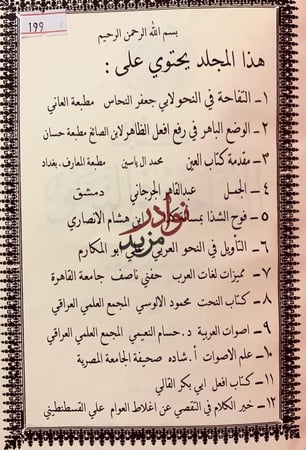 199
بسم الله الرحمن الرحيم
هذا المجلد يحتوي على :
١ - التفاحة في النحو لابي جعفر النحاس مطبعة العاني
٢ - الوضع الباهر في رفع افعل الظاهر لابن الصائغ مطبعة حسان
٣ - مقدمة كتاب العين محمد ال ياسين مطبعة المعارف . بغداد
٤ - الجمل عبدالقاهر الجرجاني دمشق
٥ - فوح الشذا بمسـ ابن هشام الانصاري
٦ - التأويل في النحو العربي ابو المكارم
٧ - مميزات لغات العرب حفني ناصف جامعة القاهرة
٨ - كتاب النحت محمود الالوسي المجمع العلمي العراقي
٩ - اصوات العربية د. حسام النعيمي المجمع العلمي العراقي
١٠ - علم الاصوات أ. شاده صحيفة الجامعة المصرية
١١ - كتاب افعل ابي بكر القالي
١٢ - خير الكلام في التقصي عن اغلاط العوام علي القسطنطيني
نوادر
مزيد